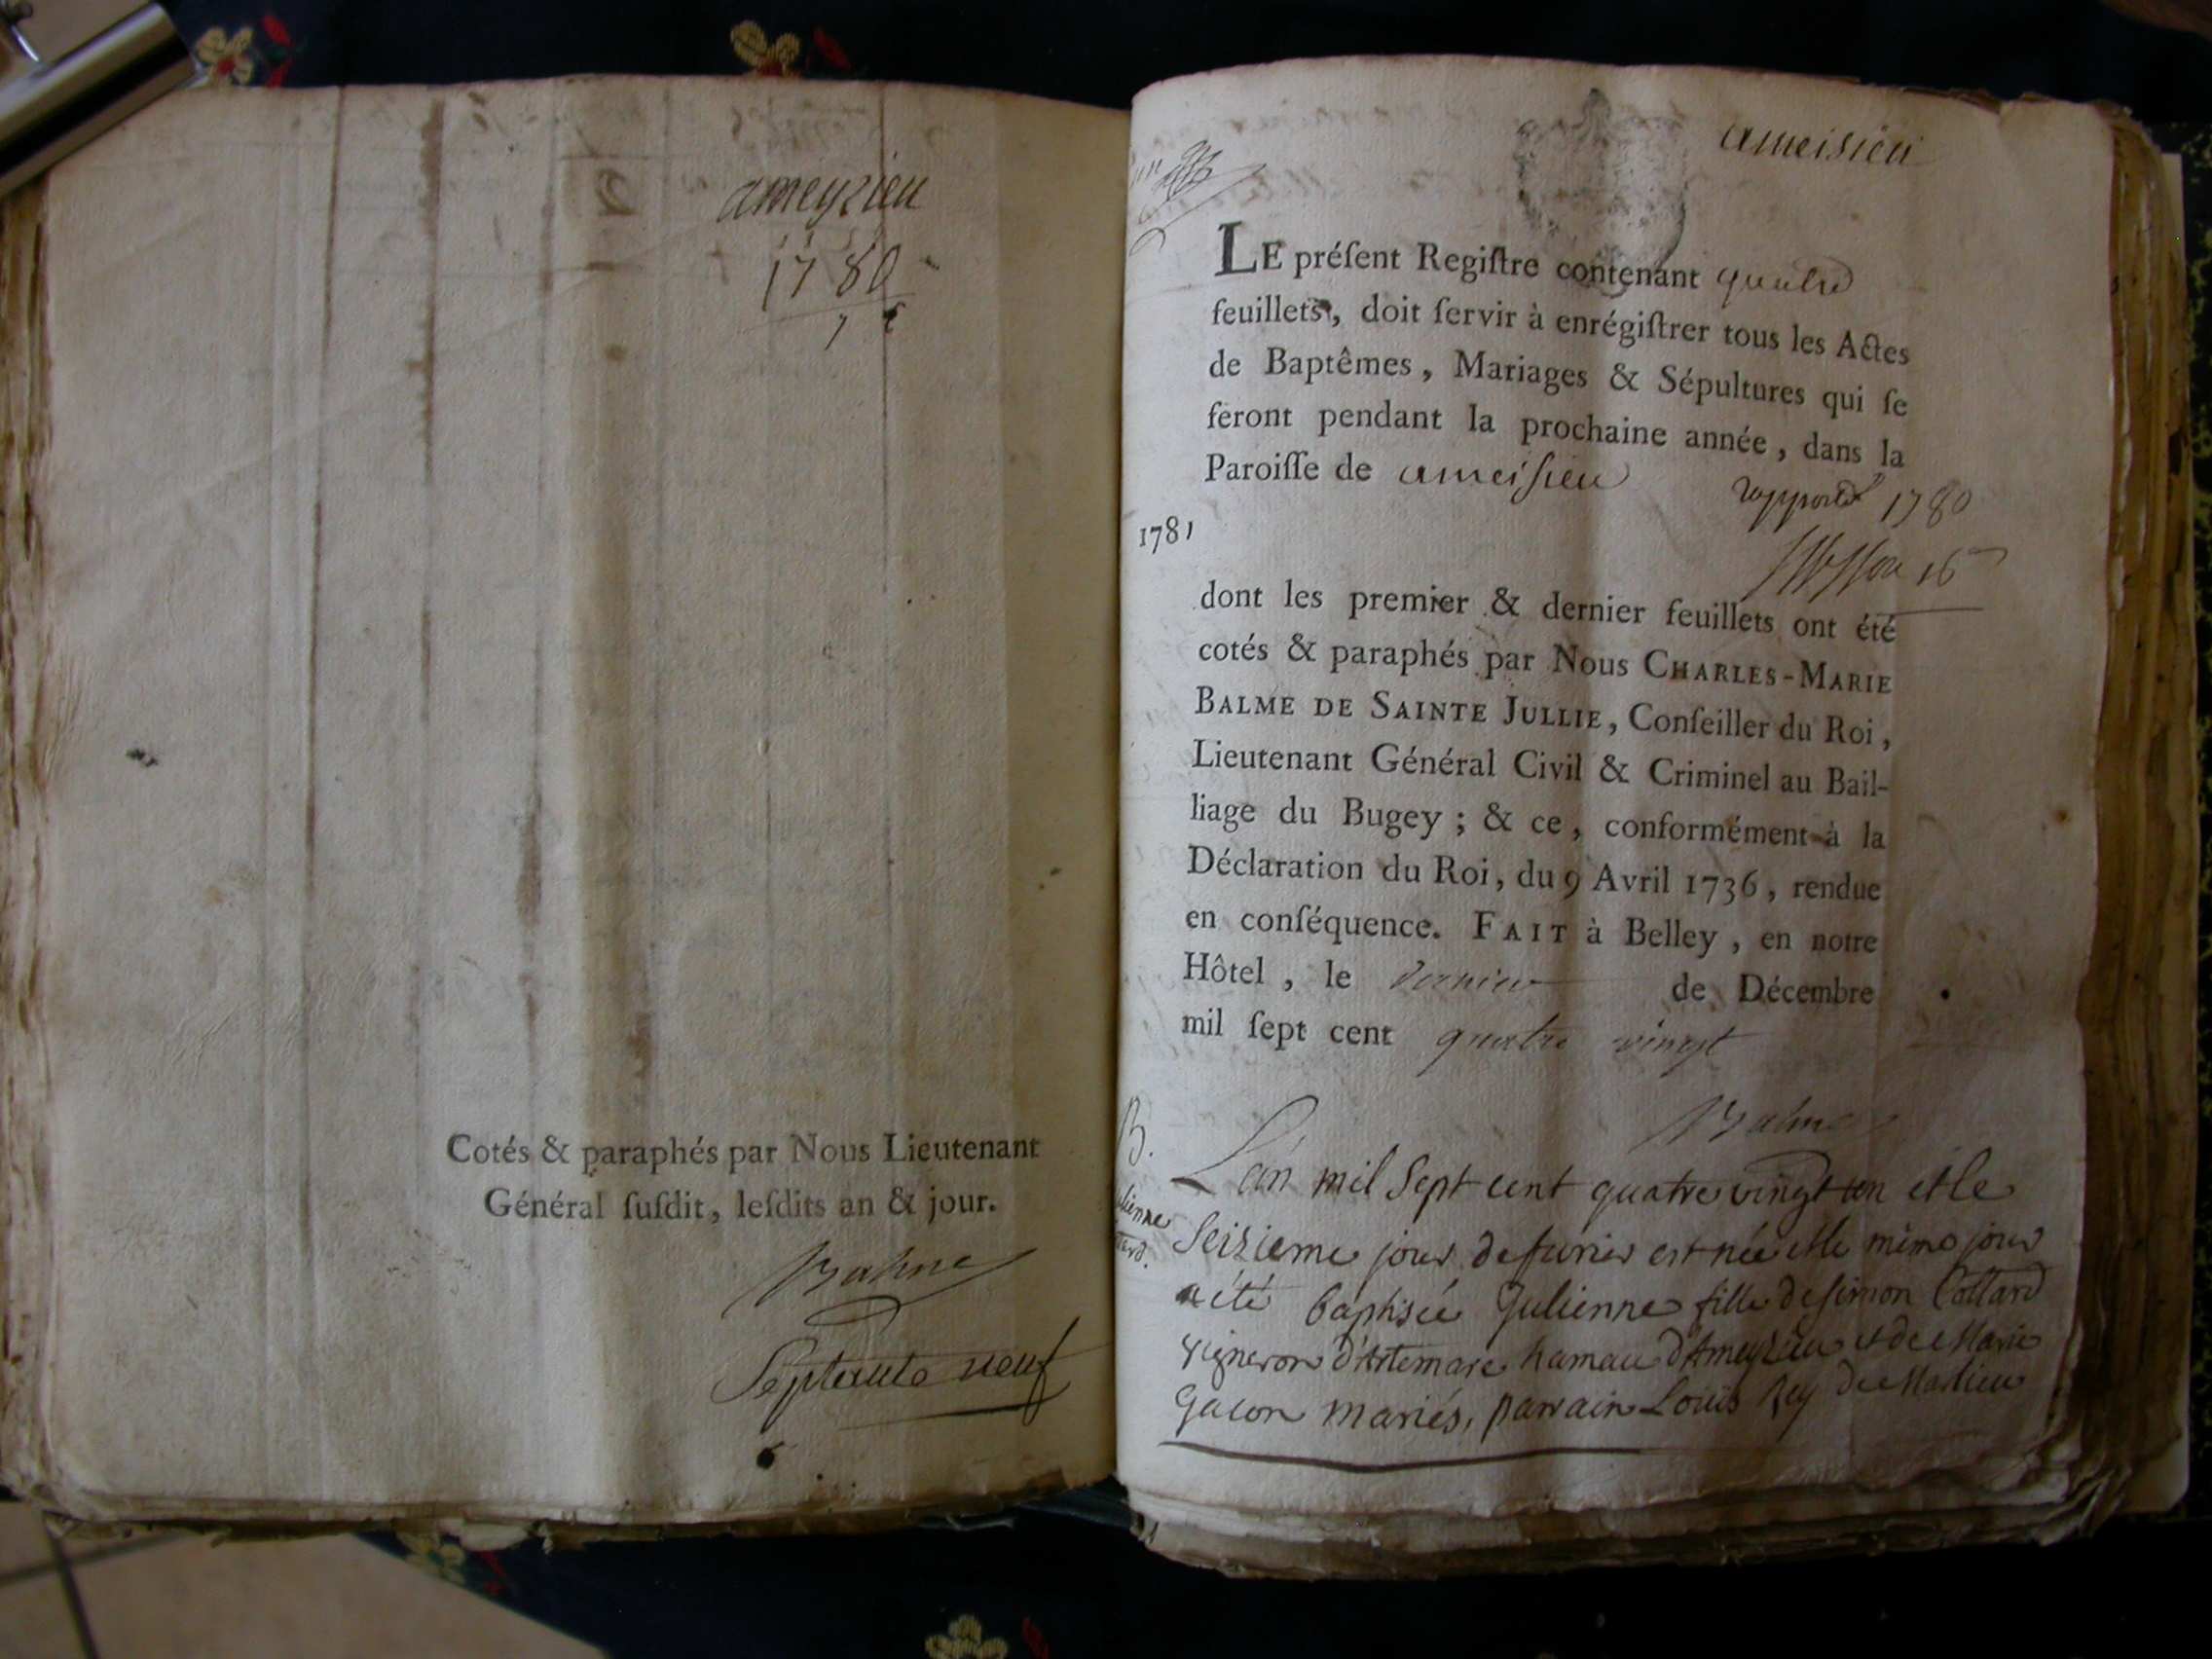 ameyzieu
1780
Cotés & paraphés par Nous Lieutenant
Général ſuſdit, leſdits an & jour.
Balme
Septante neuf
ameisieu
LE préſent Regiſtre contenant quatre
feuillets, doit ſervir à enrégiſtrer tous les Actes
de Baptêmes, Mariages & Sépultures qui ſe
feront pendant la prochaine année, dans la
Paroiſſe de ameiſieu
rapporté 1780
1781
dont les premier & dernier feuillets ont été
cotés & paraphés par Nous CHARLES-MARIE
BALME DE SAINTE JULLIE, Conſeiller du Roi,
Lieutenant Général Civil & Criminel au Bail-
liage du Bugey; & ce, conformément à la
Déclaration du Roi, du 9 Avril 1736, rendue
en conſéquence. FAIT à Belley, en notre
Hôtel, le dernier de Décembre
mil ſept cent quatre vingt
Balme
B.
L'an mil Sept cent quatre vingt un et le
Seizieme jour de fevrier est née et le même jour
a été baptisée Julienne fille de simon Collard
vigneron d'Artemare hameau d'Ameyzieu et de Marie
Gacon mariés, parrain Louis Rey de Marlieu